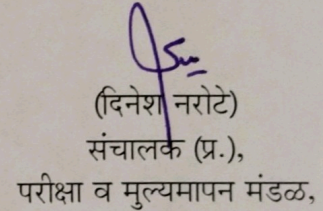 (दिनेश नरोटे)
संचालक (प्र.),
परीक्षा व मुल्यमापन मंडळ,